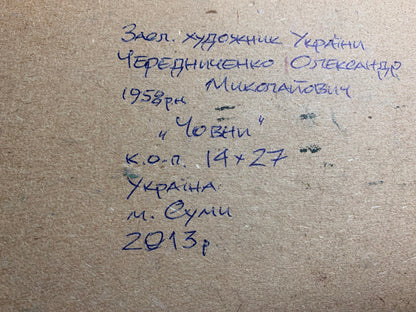 Засл. художник України
Чередниченко Олександр
Миколайович
1958рн
„Човни"
к.о.п. 14×27
Україна
м. Суми
2013р